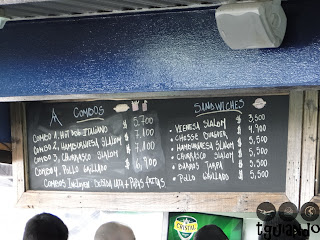 COMBOS
COMBO 1, HOT DOG ITALIANO $ 5,700
COMBO 2, HAMBURGUESA SLALOM $ 7,100
COMBO 3, CHURRASCO SLALOM $ 7,100
COMBO 4, POLLO GRILLADO $ 6,900
COMBOS INCLUYEN BEBIDA LATA + PAPAS FRITAS
SANDWICHES
• VIENESA SLALOM $ 3,500
• CHEESE BURGUER $ 4,900
• HAMBURGUESA SLALOM $ 5,500
• CHURRASCO SLALOM $ 5,500
• BARROS TARPA $ 5,500
• POLLO GRILLADO $ 5,500
CRISTAL
tquiando